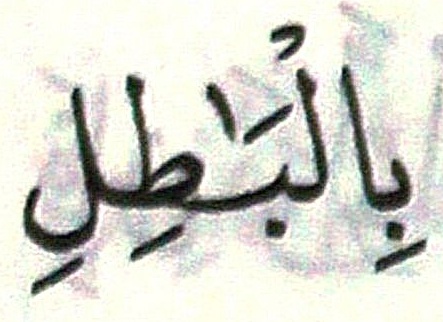 بِالْبَـٰطِلِ